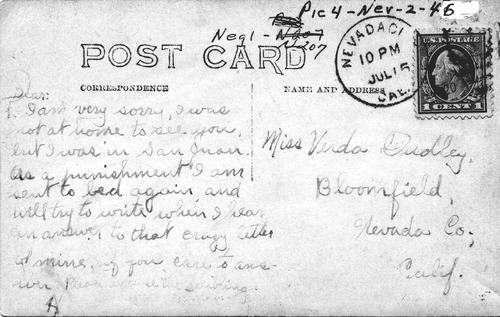 Pic 4 - Nev - 2 - 46
Neg 1 - N207
N207
NEVADA CI
10 PM
JUL 15
CAL.
U.S. POSTAGE
1 CENT 1
POST CARD
CORRESPONDENCE
NAME AND ADDRESS
Dear:
I am very sorry, I was
not at home to see you,
but I was in San Juan.
As a punishment I am
sent to bed again and
will try to write when I hear
an answer to that crazy letter
of mine, if you care to ans-
wer. Please the
Miss Verda Dudley.
Bloomfield,
Nevada Co.,
Calif.